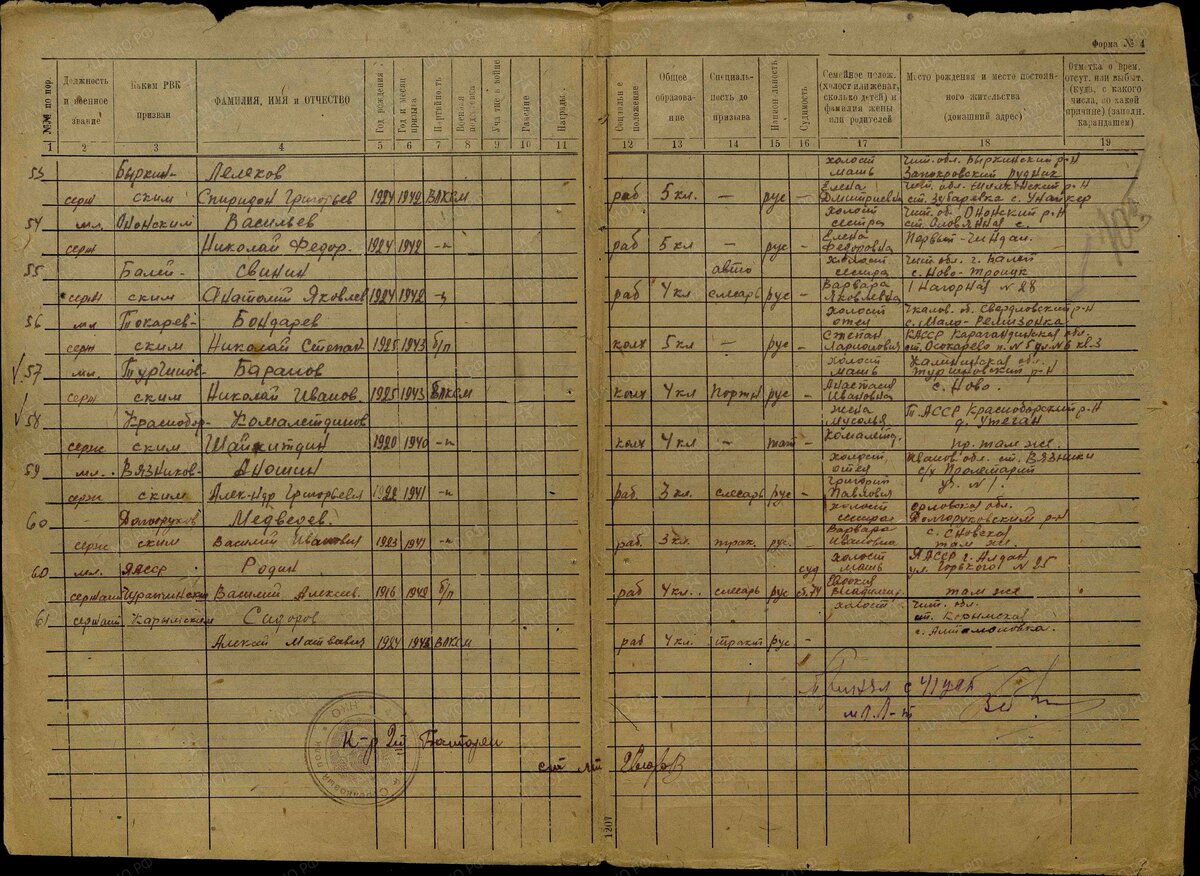 Форма № 4
№№ по пор. Должность и военное звание Каким РВК призван ФАМИЛИЯ, ИМЯ и ОТЧЕСТВО Год рождения Год и месяц призыва Партийность Воинская подготовка Участие в войне Ранение Награды Социальное положение Общее образование Специальность до призыва Национальность Судимость Семейное полож. (холост или женат, сколько детей) и фамилия жены или родителей Место рождения и место постоянного жительства (домашний адрес) Отметка о врем. отсут. или выбыт. (куда, с какого числа, по какой причине) (заполн. карандашем)
1 2 3 4 5 6 7 8 9 10 11 12 13 14 15 16 17 18 19
53 Быркин- Лелеков холост Чит. обл. Быркинский р-н
мать Запокровский рудник
серж ским Спиридон Григорьев 1924 1942 ВЛКСМ раб 5 кл. — рус — Елена Чит. обл. Шилкинский р-н
Дмитриевна ст. Зубаревка с. Унайкер
54 мл. Ононским Васильев холост Чит. об. Ононский р-н
сестра ст. Оловянная с.
серж Николай Федор. 1924 1942 -н раб 5 кл — рус - Елена Первый-Чиндан.
Федоровна
55 Балей- Свинин авто холост Чит. обл. г. Балей
сестра с. Ново-Троицк
серж ским Анатолий Яковлев 1924 1942 -н раб 4 кл слесарь рус - Варвара 1 Нагорная N 28
Яковлевна
56 мл. Токарев- Бондарев холост Чкалов. об. Свердловский р-н
отец с. Мало-Ремизонка
серж ским Николай Степан 1925 1943 б/п колх 5 кл — рус - Степан КАССР Карагандинская обл.
Ларионович ст. Осокарево п. N 5 д N 6 кв. 3
57 мл. Турчинов- Баранов холост Калининская об.
мать р-н
серж ским Николай Иванов. 1925 1943 ВЛКСМ колх 4 кл Портн рус - Анастасия с. Ново.
Ивановна
58 Краснобор- Комалетдинов жена Т.АССР Красноборский р-н
д. Утеган
серж ским Шайхитдин 1920 1940 -н колх 4 кл — тат - Комалетд. пр. там же.
59 мл. Вязников- Аношин холост Иванов. обл. ст. Вязники
отец с/х Пролетарий
серж ским Алек-ндр Григорьевич 1922 1941 -н раб. 3 кл. слесарь рус - Григорий ул. N 1.
Павлович
60 Долгоруков Медведев. холост Орловска обл.
сестра Долгоруковским р-н
серж ским Василий Иванович 1923 1941 -н раб. 3 кл. трак. рус. Варвара с. Сновска
Ивановна там же.
60 мл. ЯАССР Родин холост ЯАССР г. Алдан
суд мать ул. Горького N 25
сержант Василий Алексеев. 1916 1942 б/п раб 4 кл. слесарь рус ст. 74 Евдокия там же
Владимир.
61 сержант Карымским Сидоров холост Чит. обл.
ст. Карымская
Алексей Матвеевич 1924 1942 ВЛКСМ раб 4 кл. тракт рус - с. Антамоновка.
Принял с 41 уаб
мл. л-т
К-р 2й Батареи
ст л-т
1207